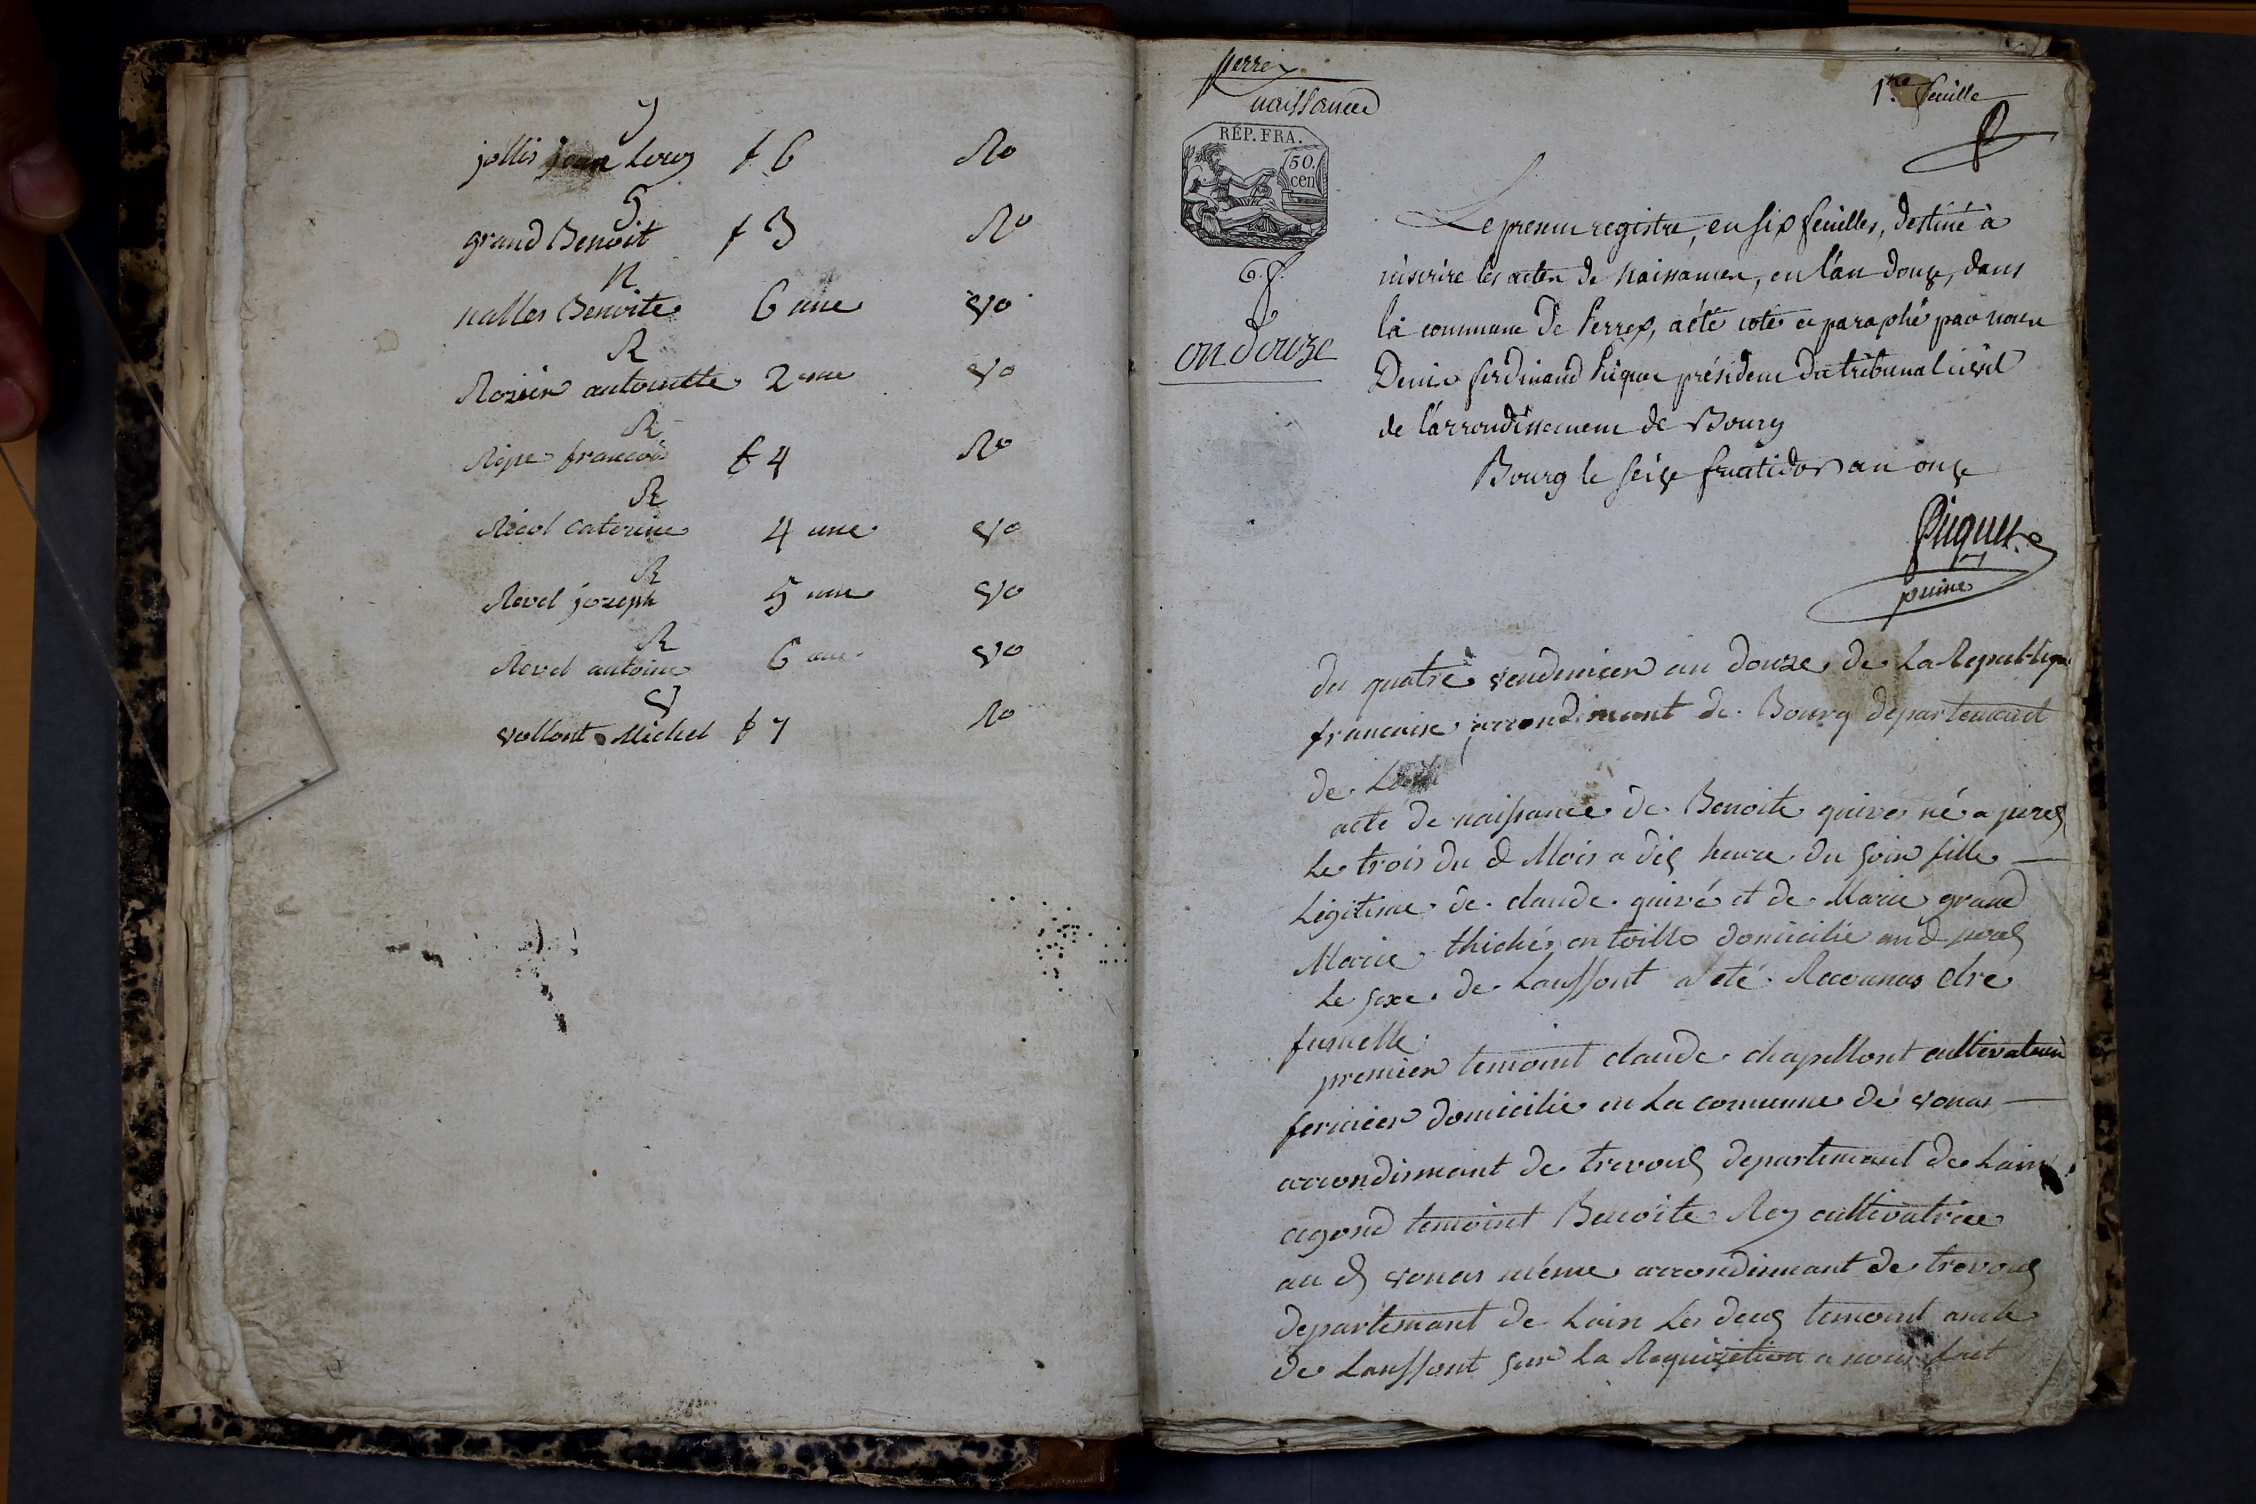 J
jollis jean Louis f 6 Ro
G
grand Benoit f 3 Ro
N
nallet Benoite 6 une Vo
R
Rozier antoinette 2 une Vo
R
Ripe francois f 4 Ro
R
Ricol caterine 4 une Vo
R
Revel jozeph 5 une Vo
R
Revel antoine 6 une Vo
V
vollont Michel f 7 Ro
perrex
naissances
1re feuille
RÉP. FRA.
50. cen
6. f.
an douze
Le present registre, en six feuilles, destiné à
inscrire les actes de naissances, en l'an douze, dans
la commune de Perrex, a été coté et paraphé par nous
Denis ferdinand Piquet président du tribunal civil
de l'arrondissement de Bourg
Bourg le seize fructidor an onze
Piquet
puine
du quatre vendemier an douze de La Republique
francaise arrondimant de Bourg departemant
de
acte de naissance de Benoite quivé né a perex
Le trois du d Mois a dix heure du soir fille
Légitime de claude quivé et de Marie grand
Marie domicilié
Le sexe de Lanffont a eté Reconnus etre
fumelle
premier temoint claude chapellont cultivateur
fermier domicilié en La comunne de vonas
arrondimant de trevoux departemant de Lain
cegond temoint Benoite Rey cultivatrice
au d vonas méme arrondimant de trevoux
departemant de Lain Les deux temoint
de Lanffont sur La Requizition a nous fait